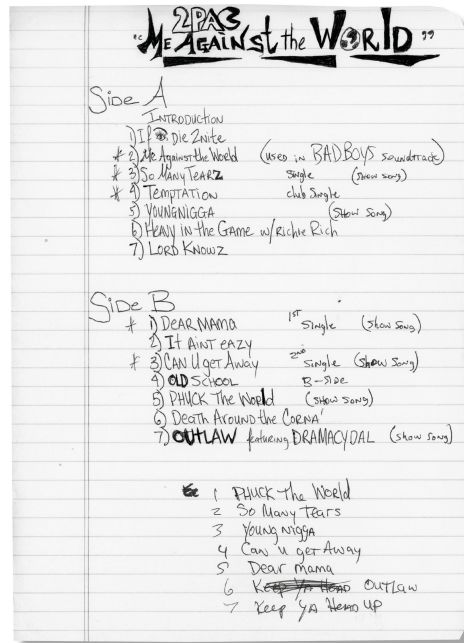 2PAC
"Me Against the World"
Side A
Introduction
1) If I Die 2nite
* 2) Me Against the World (used in BAD BOYS soundtrack)
* 3) So Many Tearz Single (show song)
* 4) Temptation club Single
5) Youngnigga (show song)
6) Heavy in the Game w/ Richie Rich
7) Lord Knowz
Side B
* 1) Dear Mama 1st Single (show song)
2) It Aint eazy
* 3) Can U get Away 2nd Single (show song)
4) Old School B-side
5) Phuck The World (show song)
6) Death Around the Corna'
7) OUTLAW featuring DRAMACYDAL (show song)
1 Phuck The World
2 So Many Tears
3 Young nigga
4 Can u get Away
5 Dear mama
6 Keep Ya Head OUTLAW
7 Keep Ya Head UP